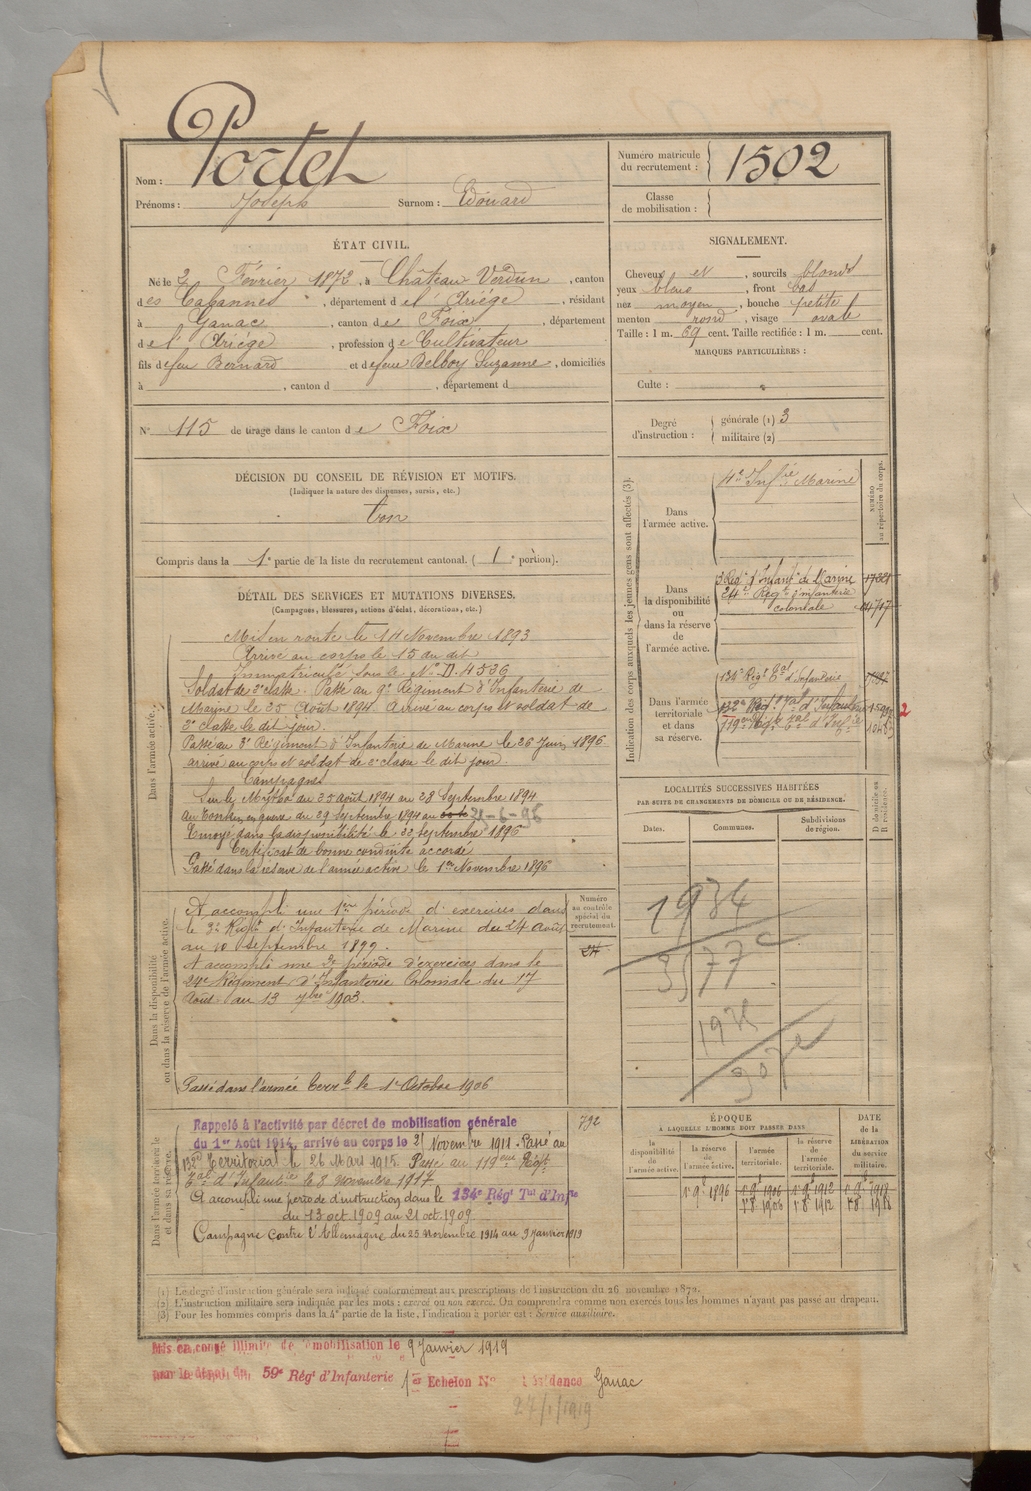 Nom : Portet
Prénoms : Joseph Surnom : Edouard
Numéro matricule du recrutement : 1502
Classe de mobilisation :
ÉTAT CIVIL.
Né le 2 Février 1872, à Château-Verdun, canton
des Cabannes, département de l'Ariége, résidant
à Ganac, canton de Foix, département
de l'Ariége, profession de Cultivateur
fils de feu Bernard et de feue Delboy Suzanne, domiciliés
à , canton d , département d
N° 115 de tirage dans le canton de Foix
SIGNALEMENT.
Cheveux et , sourcils blonds
yeux bleus , front bas
nez moyen , bouche petite
menton rond , visage ovale
Taille : 1 m. 69 cent. Taille rectifiée : 1 m. cent.
MARQUES PARTICULIÈRES :
Culte :
Degré d'instruction : générale (1) 3
militaire (2)
DÉCISION DU CONSEIL DE RÉVISION ET MOTIFS.
(Indiquer la nature des dispenses, sursis, etc.)
bon
Compris dans la 1e partie de la liste du recrutement cantonal. ( 1e portion).
DÉTAIL DES SERVICES ET MUTATIONS DIVERSES.
(Campagnes, blessures, actions d'éclat, décorations, etc.)
Dans l'armée active.
Mis en route le 14 Novembre 1893
Arrivé au corps le 15 du dit
Immatriculé sous le N° D. 4536
Soldat de 2e classe. Passé au 9e Régiment d'Infanterie de
Marine le 25 Août 1894. Arrivé au corps et soldat de
2e classe le dit jour.
Passé au 3e Régiment d'Infanterie de Marine le 26 Juin 1896
arrivé au corps et soldat de 2e classe le dit jour.
Campagnes
Sur le Mytho du 25 août 1894 au 28 Septembre 1894
au Tonkin en guerre du 29 Septembre 1894 au 21-6-96
Envoyé dans la disponibilité le 22 Septembre 1896
Certificat de bonne conduite accordé
Passé dans la réserve de l'armée active le 1er Novembre 1896
Dans la disponibilité ou dans la réserve de l'armée active.
Numéro au contrôle spécial du recrutement.
A accompli une 1ère période d'exercices dans
le 3e Régt d'Infanterie de Marine du 24 Août
au 10 Septembre 1899.
A accompli une 2e période d'exercices dans le
24e Régiment d'Infanterie Coloniale du 17
Août au 13 7bre 1903.
Passé dans l'armée terrle le 1er Octobre 1906
Dans l'armée territoriale et dans sa réserve.
792
Rappelé à l'activité par décret de mobilisation générale
du 1er Août 1914, arrivé au corps le Novembre 1914. Passé au
132e Territorial le 26 Mars 1915. Passé au 119eme Régt
Tal d'Infanterie le 8 novembre 1917.
A accompli une période d'instruction dans le 134e Régt Tal d'Infie
du 13 oct. 1909 au 21 oct. 1909
Campagne contre l'Allemagne du 25 novembre 1914 au 9 janvier 1919
Indication des corps auxquels les jeunes gens sont affectés (3).
NUMÉRO au répertoire du corps.
Dans l'armée active.
4e Infie Marine
Dans la disponibilité ou dans la réserve de l'armée active.
3 Régt d'Infantie de Marine
24e Régt d'infanterie coloniale
Dans l'armée territoriale et dans sa réserve.
134e Régt Tal d'Infanterie
132e Régt Tal d'Infanterie
119e Régt Tal d'Infie
2
LOCALITÉS SUCCESSIVES HABITÉES
PAR SUITE DE CHANGEMENTS DE DOMICILE OU DE RÉSIDENCE.
Dates. Communes. Subdivisions de région. D domicile ou R résidence.
1934
3577
ÉPOQUE
À LAQUELLE L'HOMME DOIT PASSER DANS
DATE de la LIBÉRATION du service militaire.
la disponibilité de l'armée active. la réserve de l'armée active. l'armée territoriale. la réserve de l'armée territoriale.
1er 9e 1896 1er 9e 1906 1er 9e 1912 1er 9e 1918
1 8 1906 1 8 1912 1 8 1918
(1) Le degré d'instruction générale sera indiqué conformément aux prescriptions de l'instruction du 26 novembre 1872.
(2) L'instruction militaire sera indiquée par les mots : exercé ou non exercé. On comprendra comme non exercés tous les hommes n'ayant pas passé au drapeau.
(3) Pour les hommes compris dans la 4e partie de la liste, l'indication à porter est : Service auxiliaire.
Mis en congé illimité de démobilisation le 9 Janvier 1919
par le dépôt du 59e Régt d'Infanterie 1er Echelon N° résidence Ganac
27/1/1919